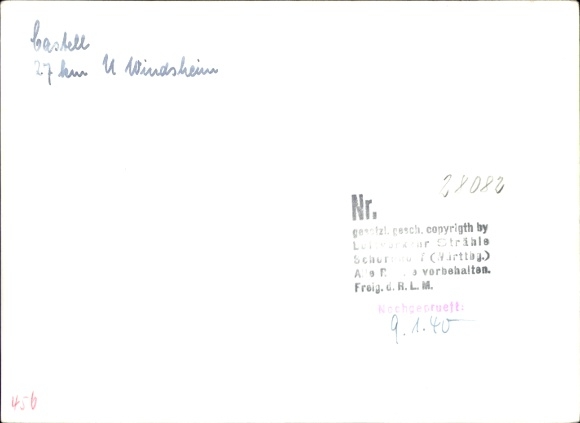 Castell
27 km N Windsheim
28082
Nr.
gesetzl. gesch. copyrigth by
Luftverkehr Strähle
Schorndorf (Württbg.)
Alle Rechte vorbehalten.
Freig. d. R. L. M.
Nachgeprueft:
9.1.40
456